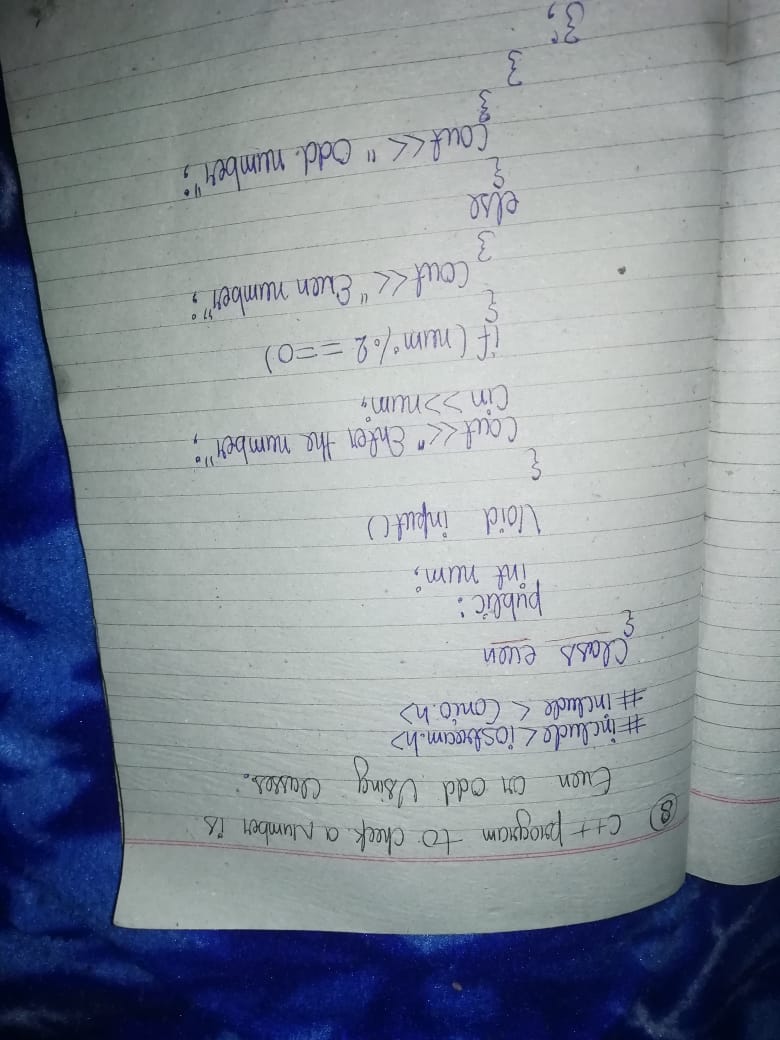 ⑧ C++ program to check a Number is
Even or odd Using Classes.
#include <iostream.h>
#include < Conio.h>
Class even
{
public:
int num;
Void input()
{
Cout<<" Enter the number";
Cin >>num;
if (num % 2 ==0)
{
Cout << " Even number";
}
else
{
Cout<< " Odd number";
}
}
};